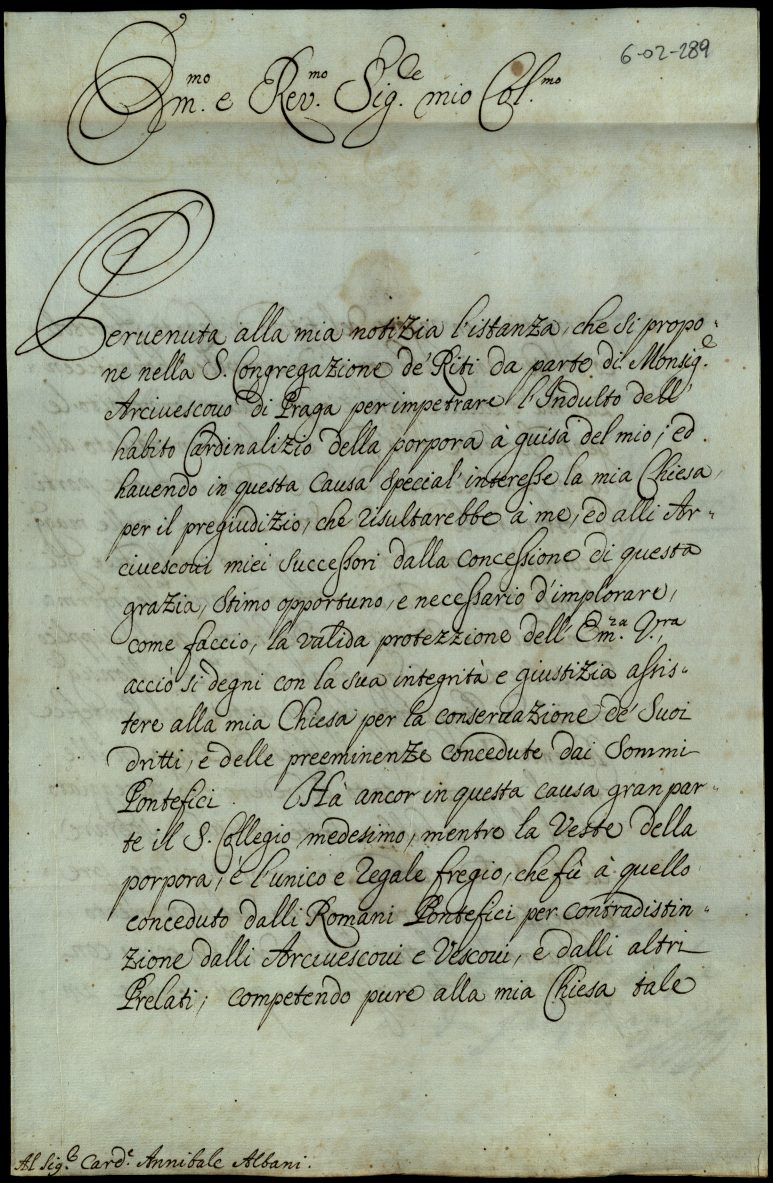 6-02-289
Em.mo e Rev.mo Sig.re mio Col.mo
Pervenuta alla mia notizia l'istanza, che si propo-
ne nella S. Congregazione de' Riti da parte di Monsig.r
Arcivescovo di Praga per impetrare l'Indulto dell'
habito Cardinalizio della porpora à guisa del mio; ed
havendo in questa causa special' interesse la mia Chiesa,
per il pregiudizio, che risultarebbe à me, ed alli Ar-
civescovi miei successori dalla concessione di questa
grazia, stimo opportuno, e necessario d'implorare,
come faccio, la valida protezzione dell' Em.za V.ra,
acciò si degni con la sua integrità e giustizia assis-
tere alla mia Chiesa per la conservazione de' suoi
dritti, e delle preeminenze concedute dai Sommi
Pontefici. Hà ancor in questa causa gran par-
te il S. Collegio medesimo, mentre la Veste della
porpora, è l'unico e regale fregio, che fù à quello
conceduto dalli Romani Pontefici per contradistin-
zione dalli Arcivescovi e Vescovi, e dalli altri
Prelati; competendo pure alla mia Chiesa tale
Al Sig.r Card.e Annibale Albani.